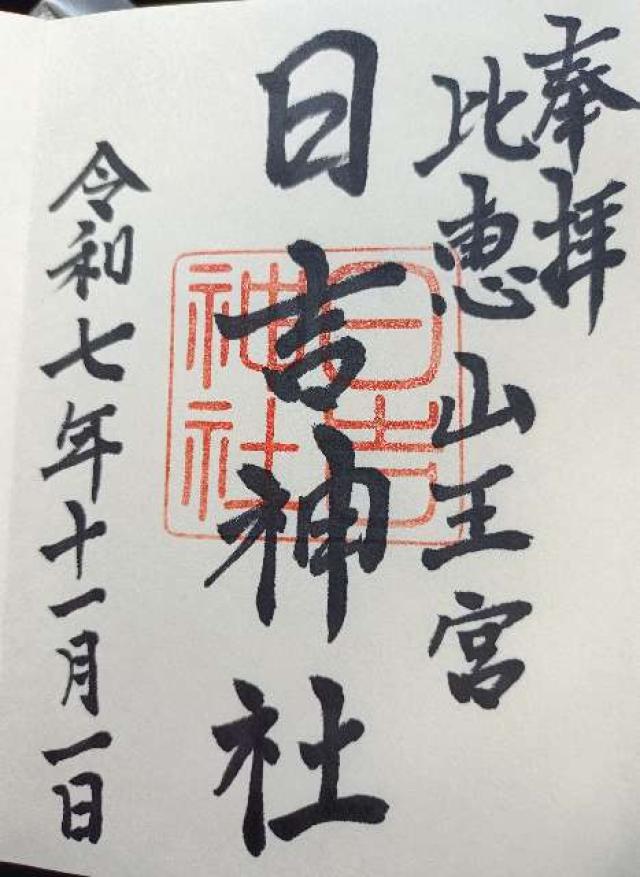 奉拝
比恵山王宮
日吉神社
日吉
神社
令和七年十一月一日